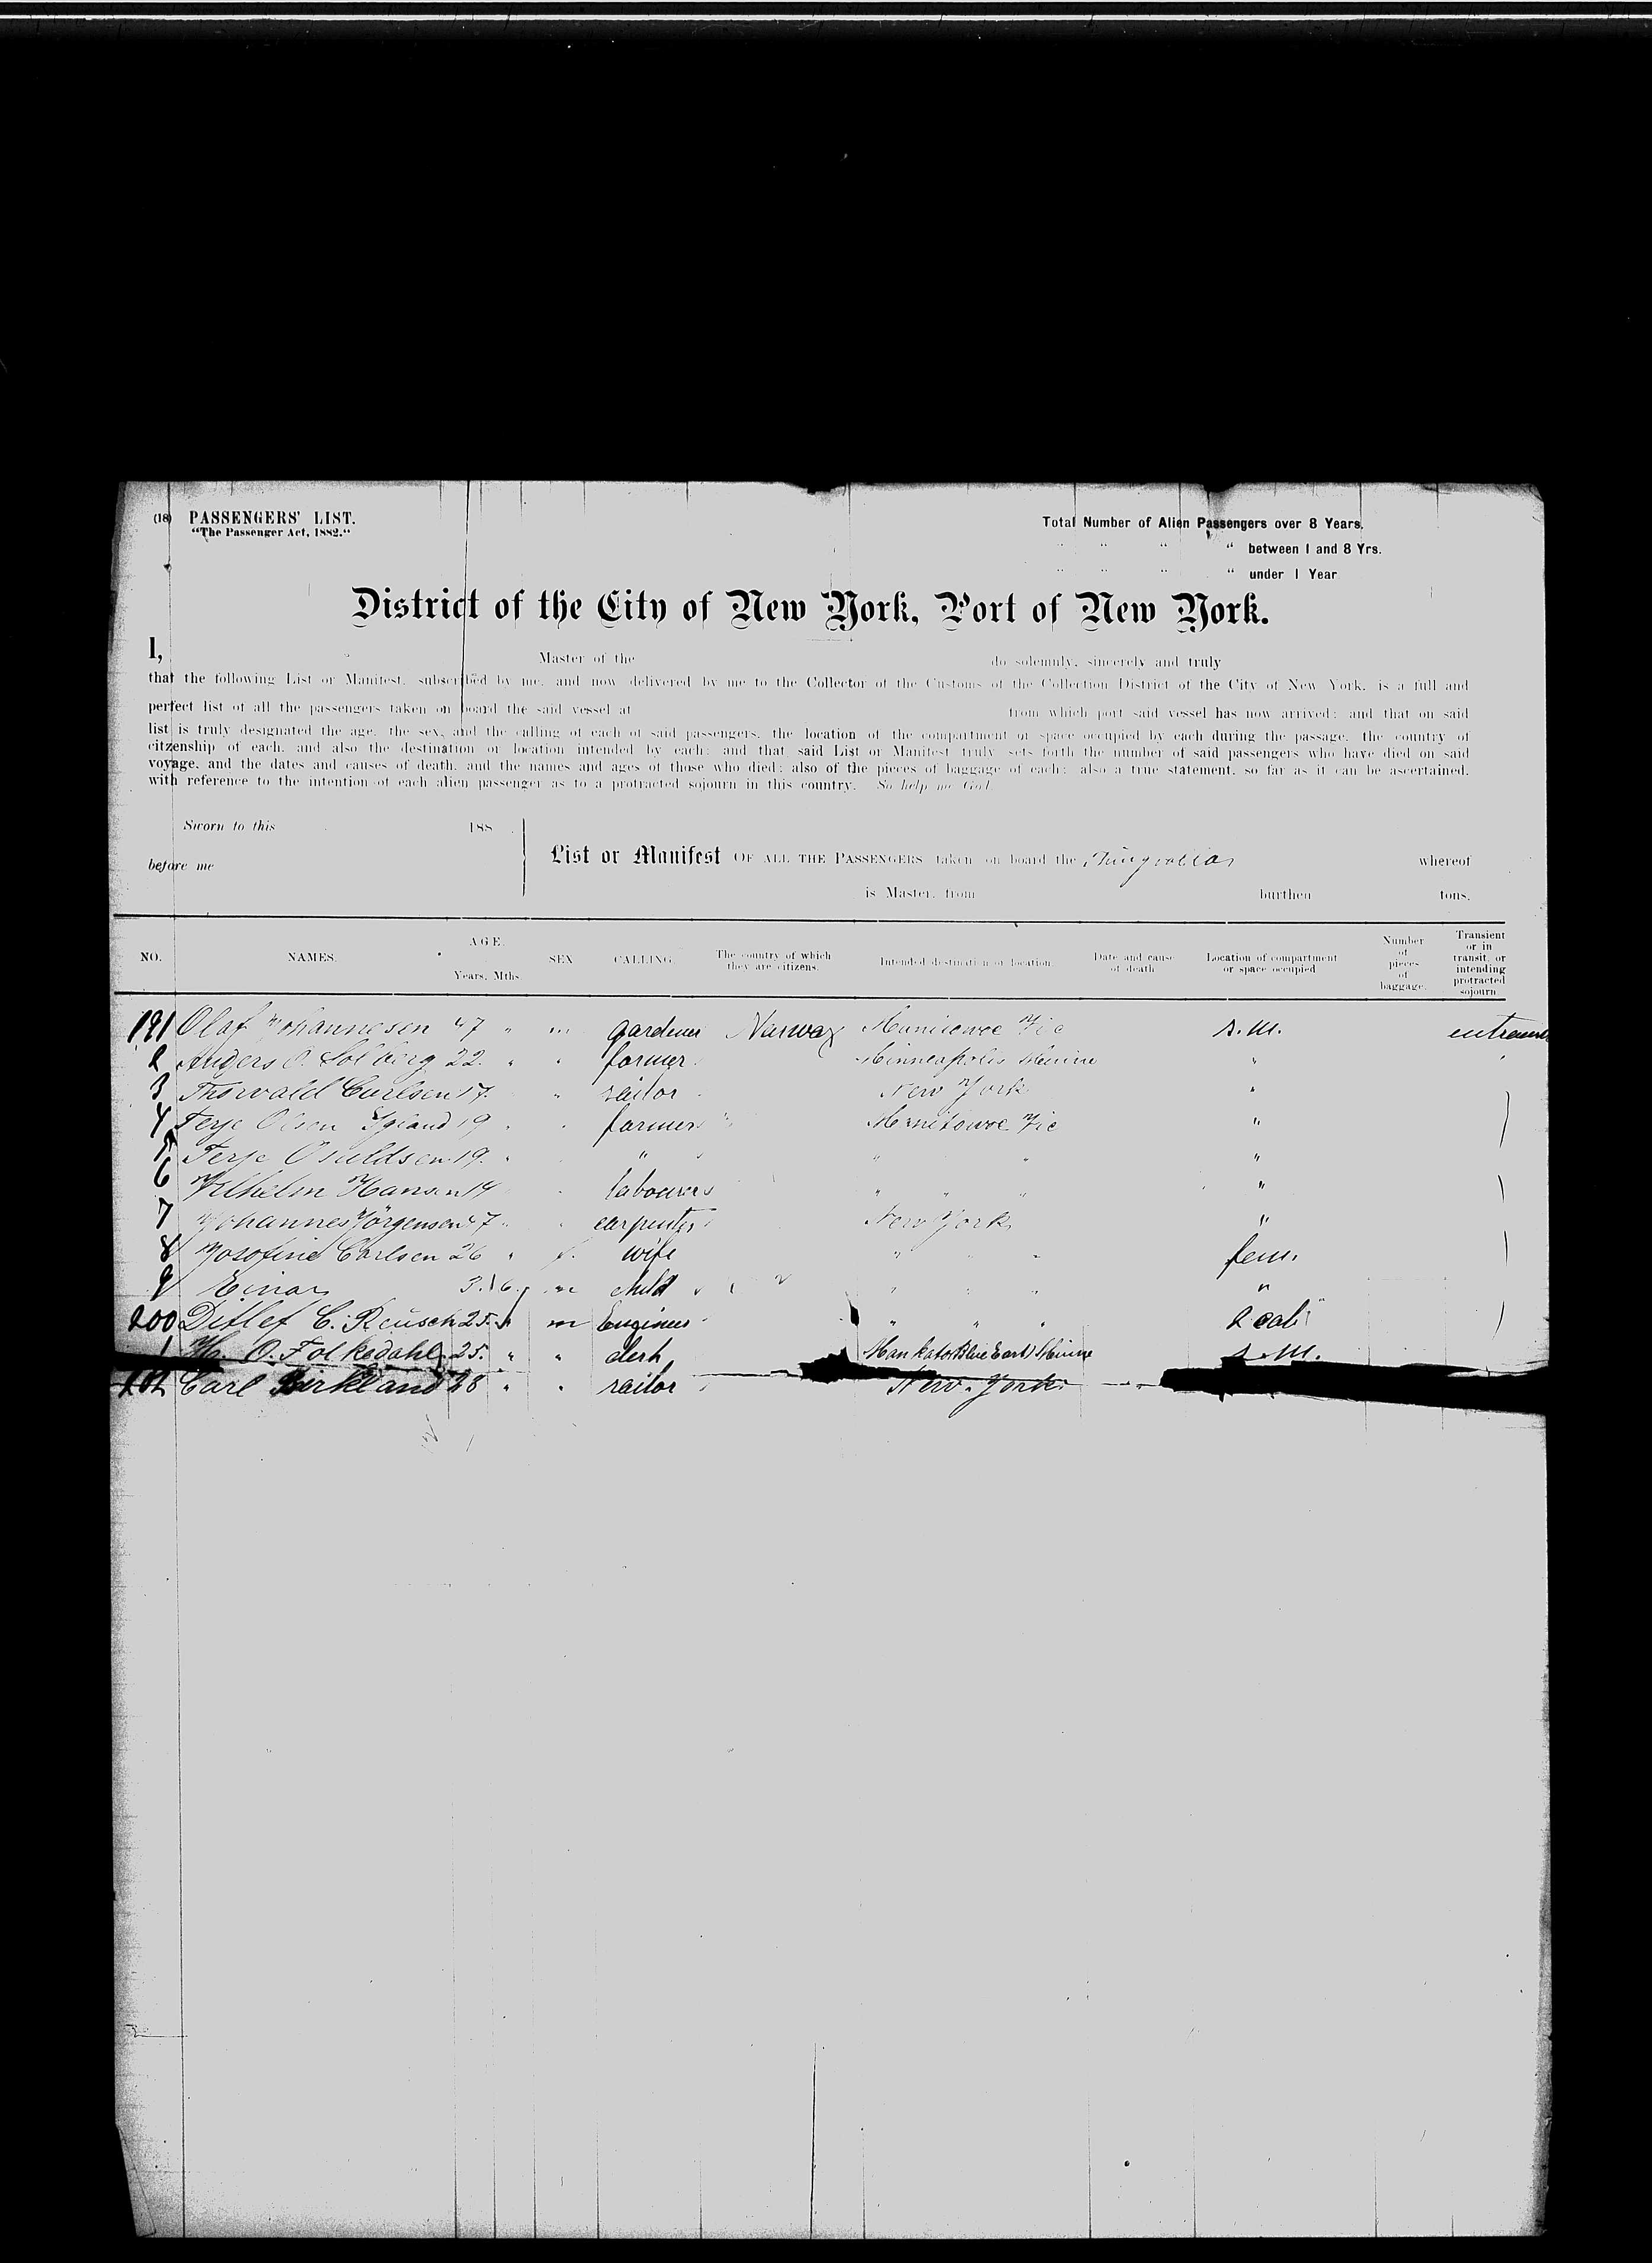 (18) PASSENGERS' LIST.
"The Passenger Act, 1882."
Total Number of Alien Passengers over 8 Years.
" " " " between 1 and 8 Yrs.
" " " " under 1 Year
District of the City of New York, Port of New York.
I, Master of the do solemnly, sincerely and truly
that the following List or Manifest, subscribed by me, and now delivered by me to the Collector of the Customs of the Collection District of the City of New York, is a full and
perfect list of all the passengers taken on board the said vessel at from which port said vessel has now arrived; and that on said
list is truly designated the age, the sex, and the calling of each of said passengers, the location of the compartment or space occupied by each during the passage, the country of
citizenship of each, and also the destination or location intended by each; and that said List or Manifest truly sets forth the number of said passengers who have died on said
voyage, and the dates and causes of death, and the names and ages of those who died; also of the pieces of baggage of each; also a true statement, so far as it can be ascertained,
with reference to the intention of each alien passenger as to a protracted sojourn in this country. So help me God.
Sworn to this 188
before me
List or Manifest OF ALL THE PASSENGERS taken on board the Thingvalla whereof
is Master, from burthen tons.
NO. NAMES. AGE. Years. Mths. SEX CALLING. The country of which they are citizens. Intended destination or location. Date and cause of death Location of compartment or space occupied Number of pieces of baggage. Transient or in transit, or intending protracted sojourn
191 Olaf Johannesen 47 " m gardener Norway Manitowoc Wic s.m.
2 Anders O. Solberg 22. " " farmer Minneapolis Minne "
3 Thorvald Carlsen 17. " sailor New York "
4 Terje Olsen 19 " farmer " Manitowoc Wic "
5 Terje Osuldsen 19. " " " " "
6 Wilhelm Hansen 14 labourer " " " "
7 Johannes Jörgensen 47 " carpenter New York "
8 Josofine Carlsen 26 " f. wife " " fem.
9 Einar 3. 6. m child " " " "
200 Ditlef C. Reusch 25. " m Engineer " " " 2 cab
1 O. Folkedahl 25. " " clerk Mankato Blue Earth Minne s.m.
202 Carl Birkland 28 " " sailor New York